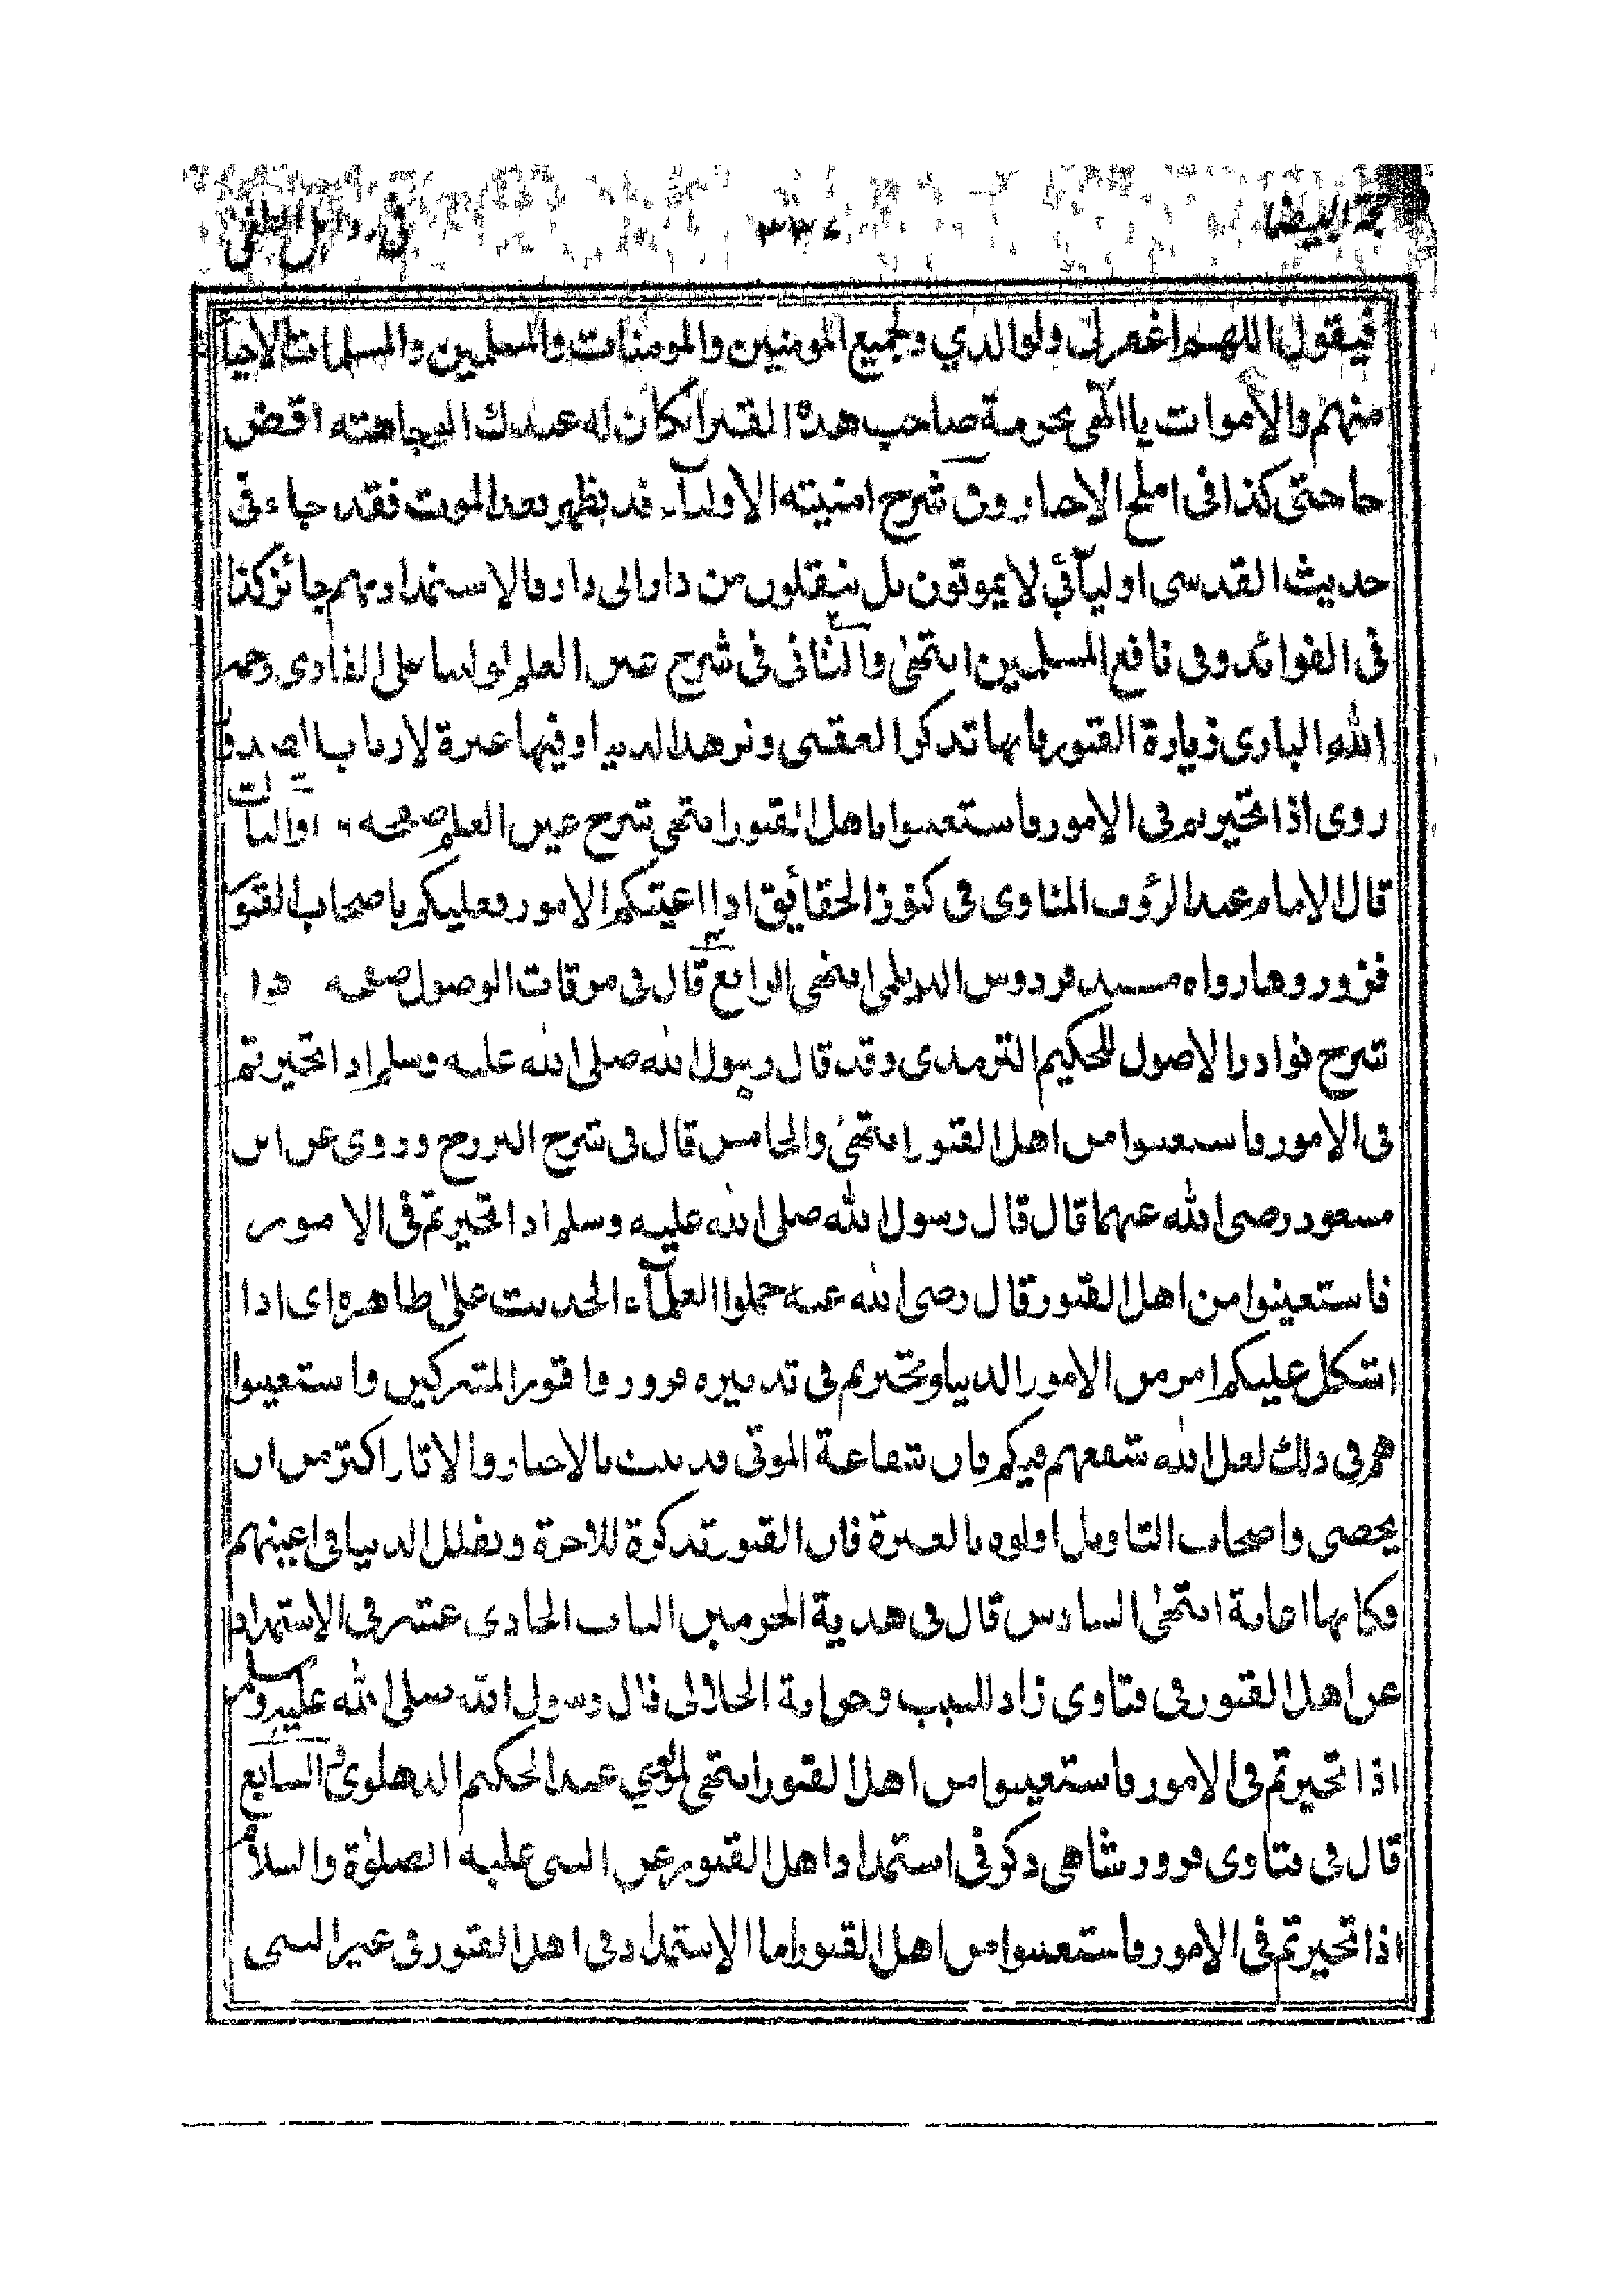 فيقول اللهم اغفر لي ولوالدي ولجميع المومنين والمومنات والمسلمين والمسلمات الاحيا
منهم والاموات يا الهي بحرمة صاحب هذه القبر انكان له عندك الوجاهته اقض
حاجتي كذا في املح الاحبار وفي شرح امنيته الاوليآء قد يظهر بعد الموت فقد جاء في
حديث القدسي اوليآئي لا يموتون بل ينقلون من دار الى دار فالاستمداد منهم جائز كذا
في الفوائد وفي نافع المسلمين انتهى والثاني في شرح عين العلم لمولينا علي القاري رحمه
الله الباري زيارة القبور فانها تذكر العقبى وتزهد الدنيا وفيها عبرة لارباب الصدق
روى اذا تحيرتم في الامور فاستعينوا باهل القبور انتهى شرح عين العلم صفحه والثالث
قال الامام عبد الرؤف المناوي في كنوز الحقائق اذا اعيتكم الامور فعليكم باصحاب القبور
فزوروها رواه مسند فردوس الديلمي انتهى الرابع قال في موقات الوصول صفحه
شرح نوادر الاصول للحكيم الترمذي وقد قال رسول الله صلى الله عليه وسلم اذا تحيرتم
في الامور فاستعينوا من اهل القبور انتهى والخامس قال في شرح البروح وروى عن ابن
مسعود رضي الله عنهما قال قال رسول الله صلى الله عليه وسلم اذا تحيرتم في الامور
فاستعينوا من اهل القبور قال رضي الله عنه حملوا العلمآء الحديث على ظاهره اي اذا
اشكل عليكم امر من الامور الدنيا وتحيرتم في تدبيره فزوروا قبور المتبركين واستعينوا
هم في ذلك لعل الله شفعهم فيكم فان شفاعة الموتى قد ثبت بالاخبار والاثار اكثر من ان
يحصى واصحاب التاويل اولوه بالعبرة فان القبور تذكرة للاخرة وتقلل الدنيا في اعينهم
فكانها اعانة انتهى السادس قال في هدية الحرمين الباب الحادي عشر في الاستمداد
عن اهل القبور في فتاوى زاد اللبيب وخزانة الجلالي قال رسول الله صلى الله عليه وسلم
اذا تحيرتم في الامور فاستعينوا من اهل القبور انتهى عبد الحكيم الدهلوي السابع
قال في فتاوى فيروز شاهي ذكر في استمداد اهل القبور عن النبي عليه الصلوة والسلام
اذا تحيرتم في الامور فاستعينوا من اهل القبور اما الاستمداد في اهل القبور في غير النبي